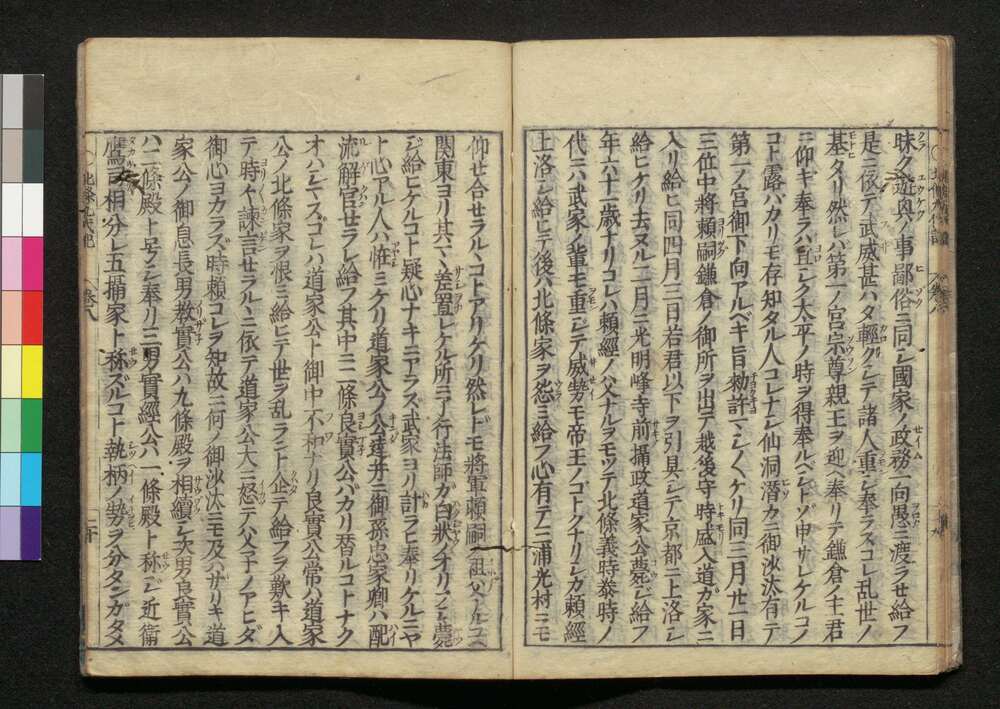 昧ク遊興ノ事鄙俗ニ同シ國家ノ政務一向愚ニ渡ラセ給フ
是ニ依テ武威甚ハタ輕クシテ諸人重シ奉ラスコレ乱世ノ
基タリ然レハ第一ノ宮宗尊親王ヲ迎ヘ奉リテ鎌倉ノ主君
ニ仰ギ奉ラハ宜シク太平ノ時ヲ得奉ルベシトゾ申サレケルコノ
コト露バカリモ存知タル人コレナシ仙洞潜カニ御沙汰有テ
第一ノ宮御下向アルベキ旨勅許マシ〱ケリ同三月廿一日
三位中將頼嗣鎌倉ノ御所ヲ出テ越後守時盛入道ガ家ニ
入リ給ヒ同四月三日若君以下ヲ引具シテ京都ニ上洛シ
給ヒケリ去ヌル二月ニ光明峰寺前攝政道家公薨シ給フ
年六十二歳ナリコレハ頼經ノ父ナルヲモツテ北條義時泰時ノ
代ニハ武家ノ輩モ重シテ威勢モ帝王ノコトクナリシカ頼經
上洛シ給ヒテ後ハ北條家ヲ怨ミ給フ心有テ三浦光村ニモ
仰セ合セラルヽコトアリケリ然レドモ將軍頼嗣ノ祖父ナルユヘ
関東ヨリ其マヽ差置レケル所ニ了行法師カ白狀ノオリフシ薨
ジ給ヒケルコト疑心ナキニアラズ武家ヨリ計ラヒ奉リケルニヤ
ト心アル人ハ恠ミケリ道家公ノ公達并ニ御孫忠家卿ハ配
流解官セラレ給フ其中ニ二條良實公バカリ替ルコトナク
オハシマスコレハ道家公ト御中不和ナリ良實公常ハ道家
公ノ北條家ヲ恨ミ給ヒテ世ヲ乱ラント企テ給フヲ歎キ入
テ時々諫言セラルヽニ依テ道家公大ニ怒テ父子ノアヒダ
御心ヨカラズ時頼コレヲ知故ニ何ノ御沙汰ニモ及ハザリキ道
家公ノ御息長男教實公ハ九條殿ヲ相續シ次男良實公
ハ二條殿ト号シ奉リ三男實經公ハ一條殿ト称ジ近衛
鷹司相分レ五攝家ト称ズルコト執柄ノ勢ヲ分タンガタメ
北條九代記
卷八
二十